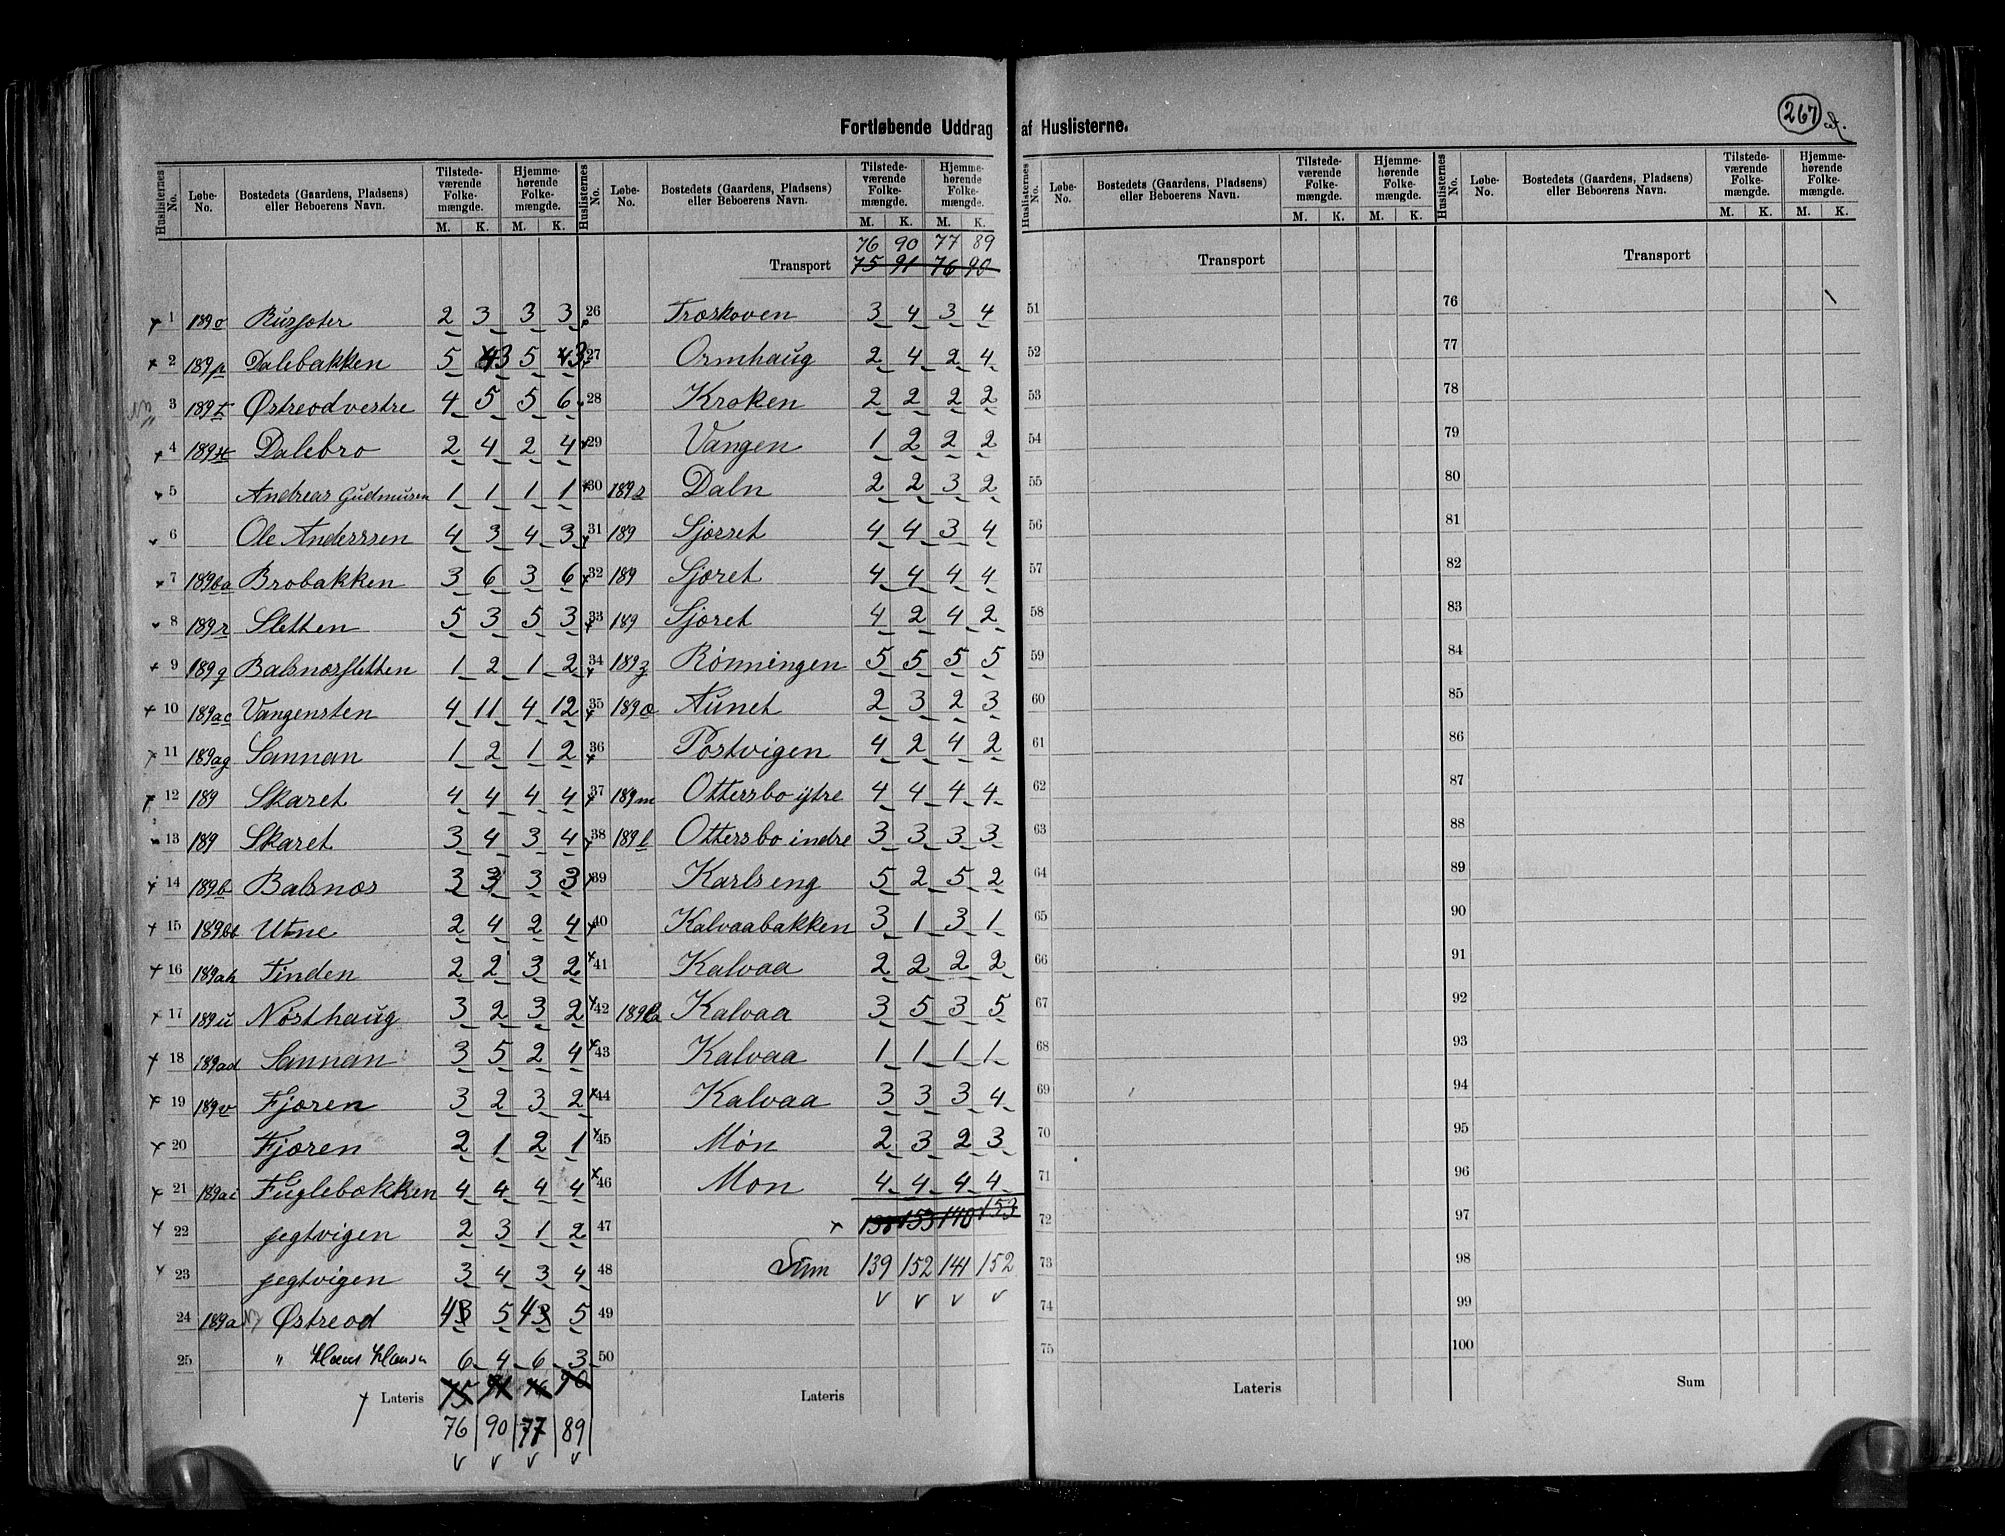 267
Fortløbende Uddrag af Huslisterne.
Huslisternes No. Løbe-No. Bostedets (Gaardens, Pladsens) eller Beboerens Navn. Tilstedeværende Folkemængde. M. K. Hjemmehørende Folkemængde. M. K.
1 189o 2 3 3 3
2 189p Dalebakken 5 3 5 3
3 189t Østreod vestre 4 5 5 6
4 Dalebro 2 4 2 4
5 Andreas Gudmusen 1 1 1 1
6 Ole Anderssen 4 3 4 3
7 189ba Brobakken 3 6 3 6
8 189r Sletten 5 3 5 3
9 189q Balsnæssletten 1 2 1 2
10 189ac Vangensten 4 11 4 12
11 189ag Sannan 1 2 1 2
12 189 Skaret 4 4 4 4
13 189 Skaret 3 4 3 4
14 189b Balsnæs 3 3 3 3
15 189bb Utne 2 4 2 4
16 189ah Tinden 2 2 3 2
17 189u Nøsthaug 3 2 3 2
18 189ad Sannan 3 5 2 4
19 189v Fjæren 3 2 3 2
20 Fjæren 2 1 2 1
21 189ai Fuglebækken 4 4 4 4
22 Jegtvigen 2 3 1 2
23 Jegtvigen 3 4 3 4
24 189a Østreod 4 5 4 5
25 " Hans Hansen 6 4 6 3
Lateris 75 91 76 90
76 90 77 89
Huslisternes No. Løbe-No. Bostedets (Gaardens, Pladsens) eller Beboerens Navn. Tilstedeværende Folkemængde. M. K. Hjemmehørende Folkemængde. M. K.
76 90 77 89
Transport 75 91 76 90
26 Træskoven 3 4 3 4
27 Ormhaug 2 4 2 4
28 Kroken 2 2 2 2
29 Vangen 1 2 2 2
30 Daln 2 2 3 2
31 189 Sjøret 4 4 3 4
32 189 Sjøret 4 4 4 4
33 189 Sjøret 4 2 4 2
34 189z Rønningen 5 5 5 5
35 Aunet 2 3 2 3
36 Postvigen 4 2 4 2
37 189m Ottersbo ytre 4 4 4 4
38 189l Ottersbo indre 3 3 3 3
39 Karlseng 5 2 5 2
40 Kalvaabakken 3 1 3 1
41 Kalvaa 2 2 2 2
42 Kalvaa 3 5 3 5
43 Kalvaa 1 1 1 1
44 Kalvaa 3 3 3 4
45 Møn 2 3 2 3
46 Møn 4 4 4 4
47 138 153 140 153
48 Sum 139 152 141 152
49
50
Lateris
Huslisternes No. Løbe-No. Bostedets (Gaardens, Pladsens) eller Beboerens Navn. Tilstedeværende Folkemængde. M. K. Hjemmehørende Folkemængde. M. K.
Transport
51
52
53
54
55
56
57
58
59
60
61
62
63
64
65
66
67
68
69
70
71
72
73
74
75
Lateris
Huslisternes No. Løbe-No. Bostedets (Gaardens, Pladsens) eller Beboerens Navn. Tilstedeværende Folkemængde. M. K. Hjemmehørende Folkemængde. M. K.
Transport
76
77
78
79
80
81
82
83
84
85
86
87
88
89
90
91
92
93
94
95
96
97
98
99
100
Sum